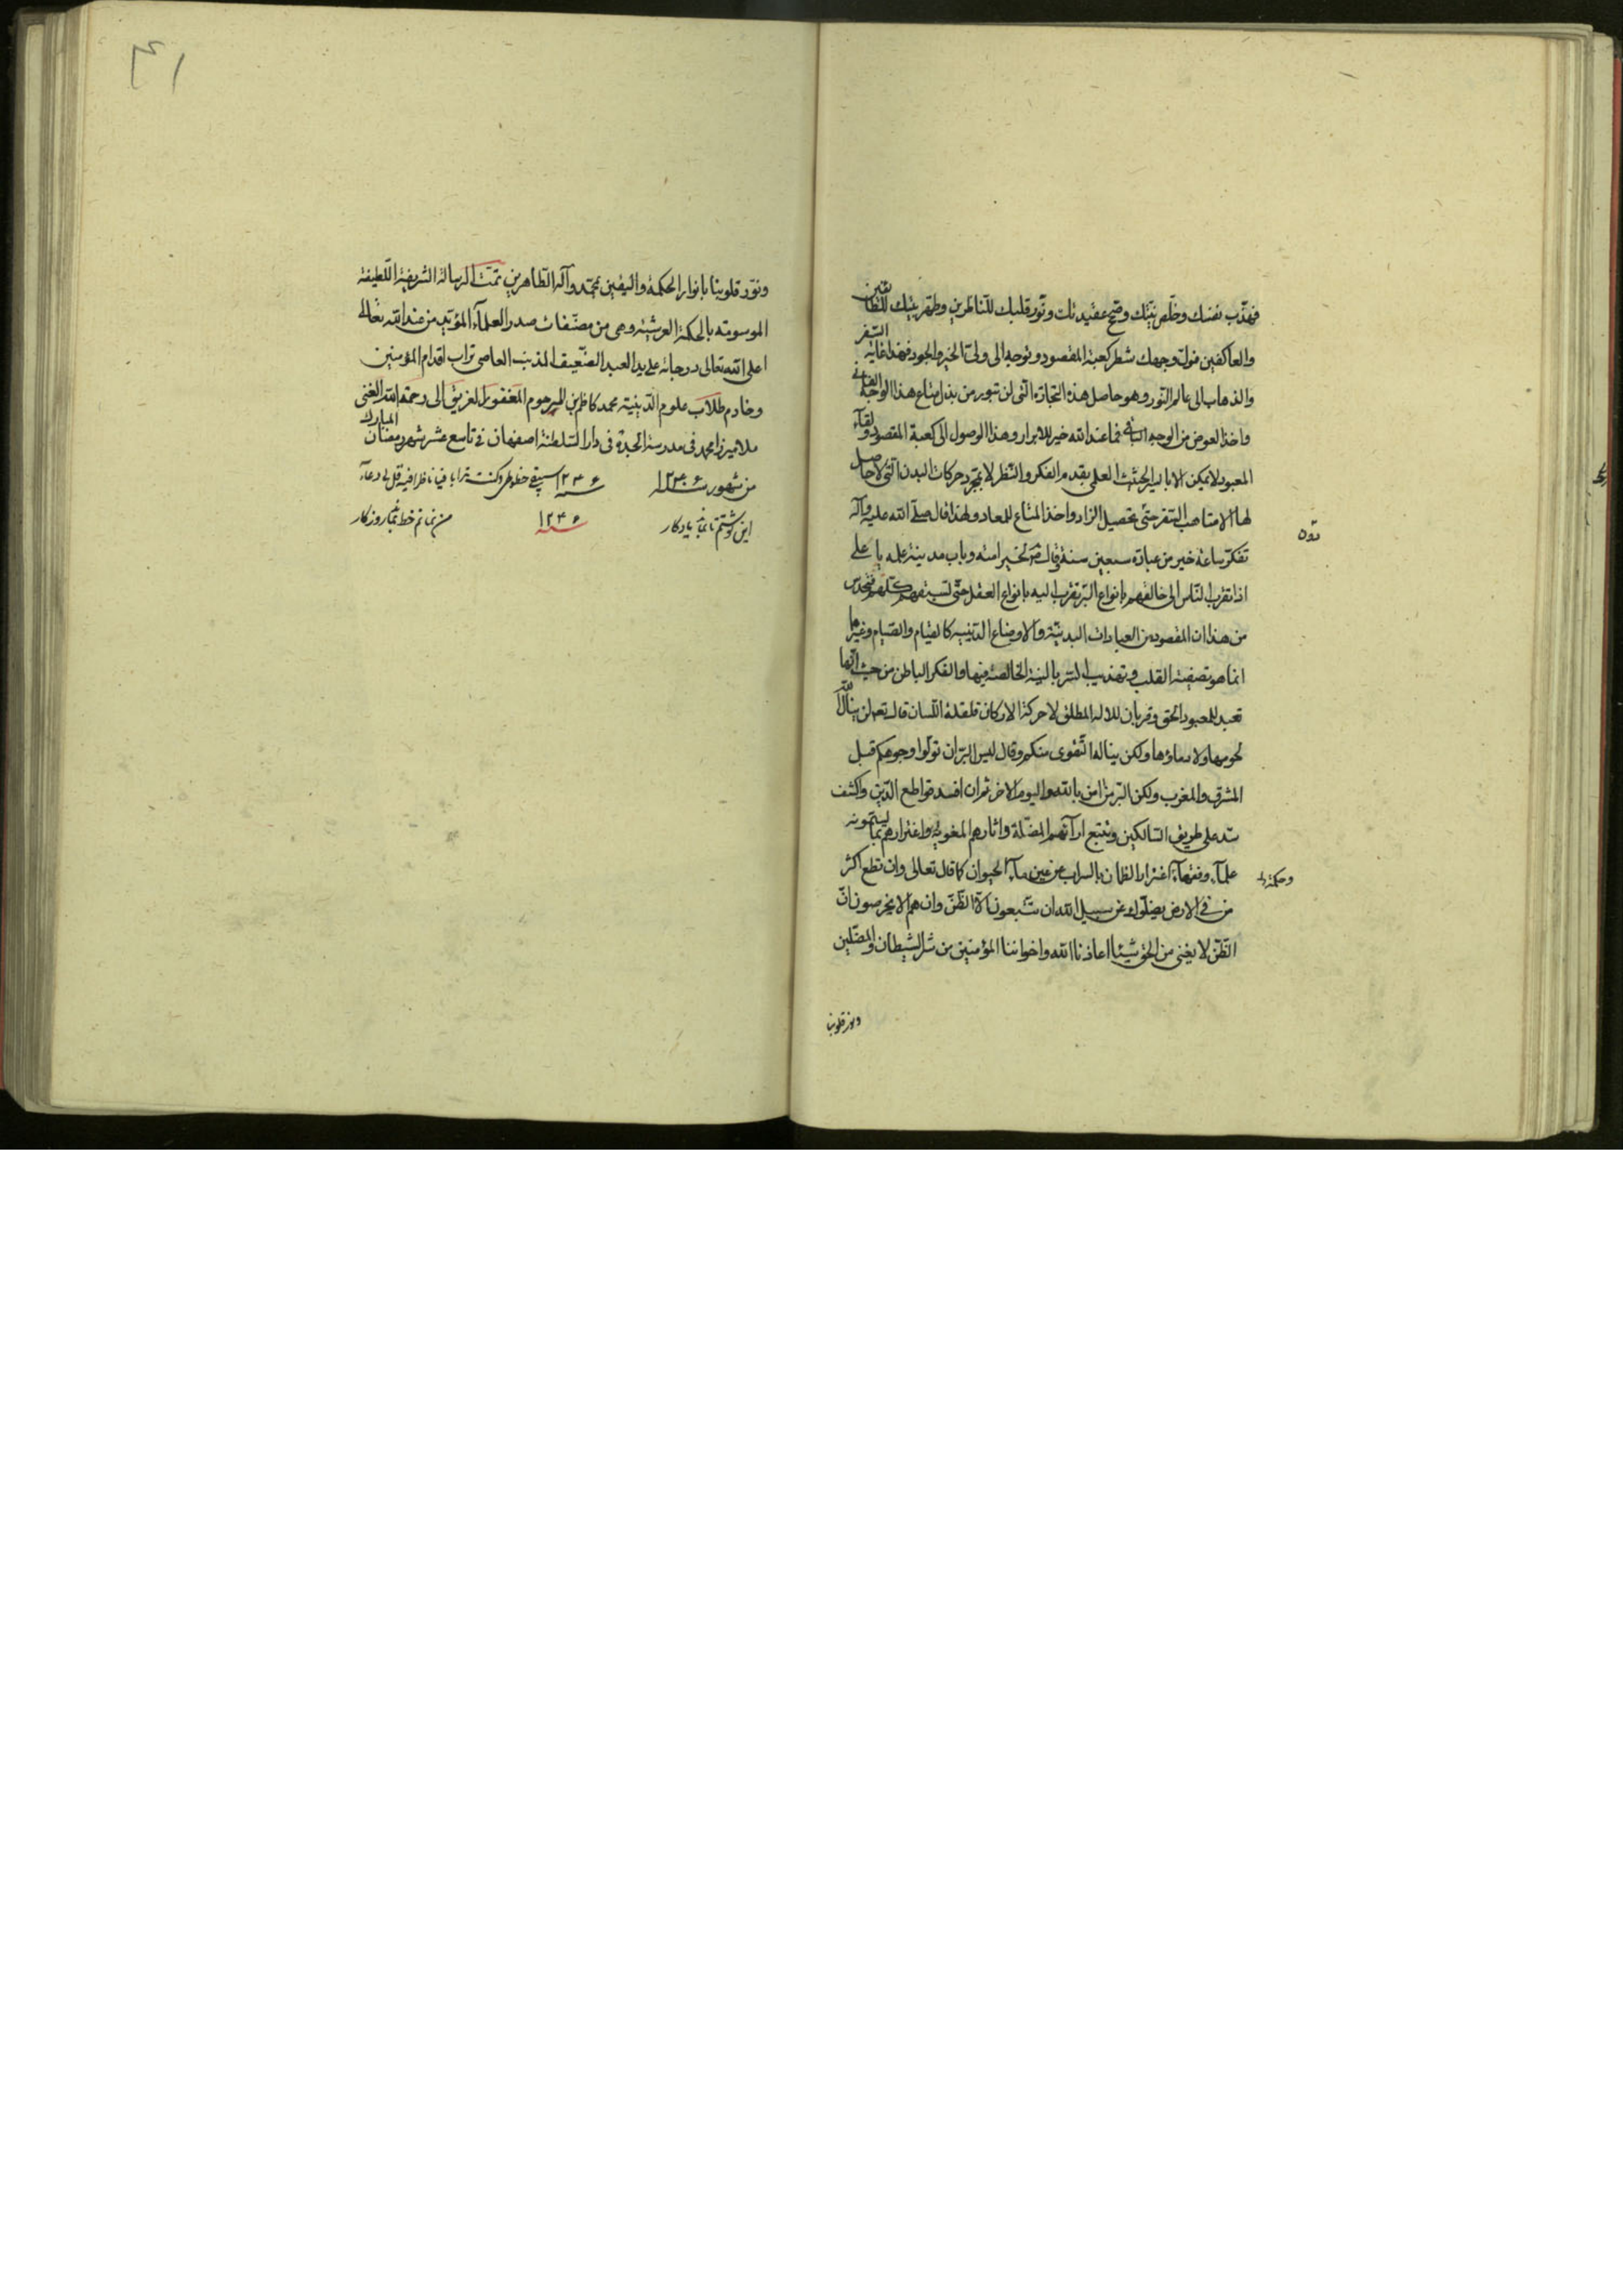 فهذّب نفسك وخلّص نيّتك وصحّح عقيدتك ونوّر قلبك للناظرين وطهّر بيتك للطائفين
والعاكفين فولّ وجهك شطر كعبة المقصود وتوجه الى ولىّ الخير والجود فهذا غاية السفر
والذهاب الى عالم النور وهو حاصل هذه التجارة التى لن تبور من بذل متاع هذا الوجه الفانى
واخذ العوض من الوجه الباقى فما عند الله خير للابرار وهذا الوصول الى كعبة المقصود ولقآء
المعبود لا يمكن الا بالسير الحثيث العلمى بقدم الفكر والنظر لا بمجرد حركات البدن التى لا حاصل
لها الا متاعب السفر حتى تحصيل الزاد واخذ المتاع للمعاد ولهذا قال صلى الله عليه وآله
تفكّر ساعة خير من عبادة سبعين سنة وقال ص لخير امته وباب مدينة علمه يا على
اذا تقرب الناس الى خالقهم بانواع البرّ تقرب اليه بانواع العقل حتى تسبقهم كلهم فتحدس
من هذا ان المقصود من العبادات البدنية والاوضاع الدينيه كالقيام والصيام وغيرها
انما هو تصفية القلب وتهذيب السر بالنية الخالصة فيها والفكر الباطن من حيث انها
تعبد للمعبود الحق وقربان للاله المطلق لا حركة الاركان قلقلة اللسان قال تعم لن ينال الله
لحومها ولا دماؤها ولكن يناله التقوى منكم وقال ليس البرّ ان تولّوا وجوهكم قبل
المشرق والمغرب ولكن البرّ من امن بالله واليوم الاخر ثم ان افسد قواطع الدّين واكثف
سد على طريق السالكين وتتبع ارآئهم المضلة واثارهم المغويه واغترارهم بما يسمّونه
علمآء وفقهآء اغترار الظمان بالسراب عن عين مآء الحيوان كما قال تعالى وان تطع اكثر
من فى الارض يضلّوك عن سبيل الله ان يتّبعون الّا الظنّ وان هم الا يخرصون انّ
الظنّ لا يغنى من الحق شيئا اعاذنا الله واخواننا المؤمنين من شر الشيطان والمضلّين
وحكمة
ونور قلوبنا
ونوّر قلوبنا بانوار الحكمة واليقين بمحمّد وآله الطّاهرين تمّت الرسالة الشريفة اللّطيفة
الموسومته بالحكمة العرشيّة وهى من مصنّفات صدر العلمآء المؤيّد من عند الله تعالى
اعلى الله تعالى درجاته على يد العبد الضّعيف المذنب العاصى تراب اقدام المؤمنين
وخادم طلّاب علوم الدّينيّة محمد كاظم بن المرحوم المغفور الغريق الى رحمة الله الغنى
ملا ميرزا محمد فى مدرسة الجدة فى دار السّلطنة اصفهان فى تاسع عشر شهر رمضان المبارك
من شهور سنة ١٢٣٠۶ سنة ١٢٣۶ سيبقى خطوطى وكنت ترابا فيا ناظرا فيه قل لى دعآء
اين نوشتم تا بماند يادكار سنة ١٢٣۶ من نمانم خط بماند روزكار
٤١